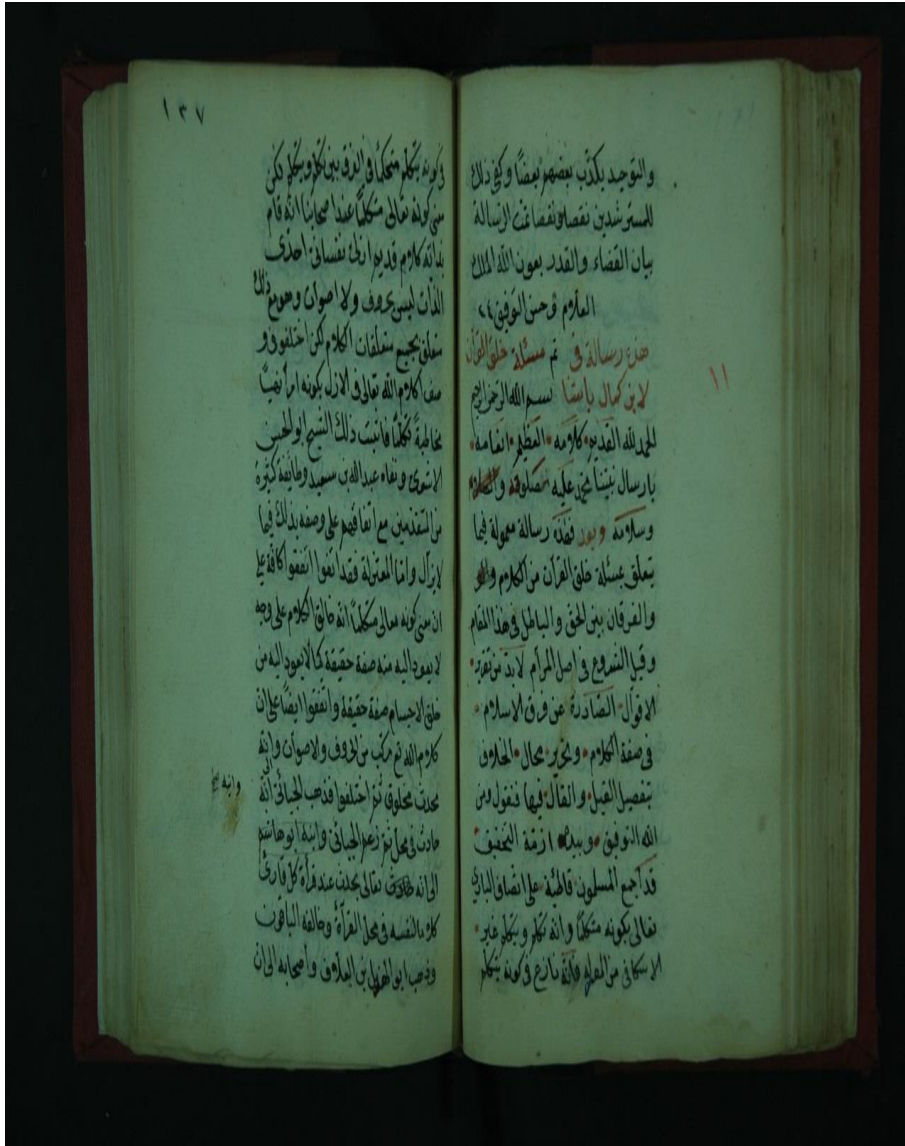 والتوحيد يكذب بعضهم بعضا وكفى ذلك
للمسترشدين نقصا تمت الرسالة
بيان القضاء والقدر بعون الله الملك
العلام وحسن التوفيق
هذه رسالة فى تم مسئلة خلق القرآن
لابن كمال باشا بسم الله الرحمن الرحيم
١١
الحمد لله القديم كلامه العظيم انعامه
بارسال نبينا محمد عليه صلوته
وسلامه وبعد فهذه رسالة معمولة فيما
يتعلق بمسئلة خلق القرآن من الكلام
والفرقان بين الحق والباطل فى هذا المقام
وقبل الشروع فى اصل المرام لا بد من تقرير
الاقوال الصادرة عن فرق الاسلام
فى صفة الكلام وتحرير محال الخلاف
بتفصيل القيل والقال فيها فنقول ومن
الله التوفيق وبيده ازمة التحقيق
قد اجمع المسلمون قاطبة على اتصاف البارى
تعالى بكونه متكلما وانه تكلم ويتكلم غير
الاسكافى من المعتزلة فانه نازع فى كونه يتكلم
١٣٧
وكونه يتكلم متحكما فى الفرق بين تكلم ويتكلم لكن
معنى كونه تعالى متكلما عند اصحابنا انه قام
بذاته كلام قديم ازلى نفسانى احدى
الذات ليس بحروف ولا اصوات وهو مع ذلك
متعلق بجميع متعلقات الكلام لكن اختلفوا فى و
صف كلام الله تعالى فى الازل بكونه امرا نهيا
مخاطبة تكلما فاثبت ذلك الشيخ ابو الحسن
الاشعرى ونفاه عبد الله بن سعيد وطائفة كثيرة
من المتقدمين مع اتفاقهم على وصفه بذلك فيما
لا يزال واما المعتزلة فقد اتفقوا كافة على
ان معنى كونه تعالى متكلما انه خالق الكلام على وجه
لا يعود اليه منه صفة حقيقة كما لا يعود اليه من
خلق الاجسام صفة حقيقة واتفقوا ايضا على ان
كلام الله تع مركب من الحروف والاصوات وانه
محدث مخلوق ثم اختلفوا فذهب الجبائى
وابنه
حادث فى محل ثم زعم الجبائى وابنه ابو هاشم
الى انه تعالى يحدث عند قرأة كل قارئ
كلاما لنفسه فى محل القرأة وخالفه الباقون
وذهب ابو الهذيل بن العلاف واصحابه الى ان